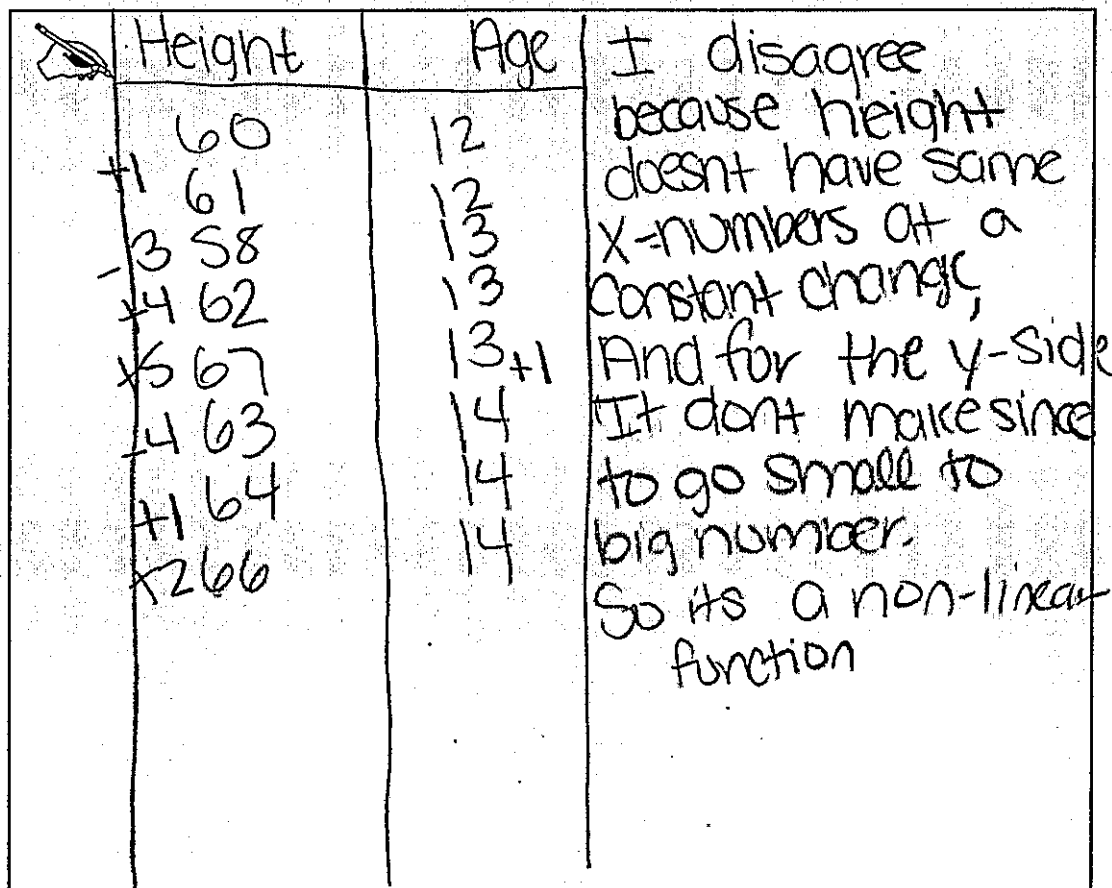 Height Age
60 12
+1 61 12
-3 58 13
+4 62 13
+5 67 13 +1
-4 63 14
+1 64 14
+2 66 14
I disagree
because height
doesnt have same
x-numbers at a
constant change,
And for the y-side
It dont make since
to go small to
big number.
So its a non-linear
function